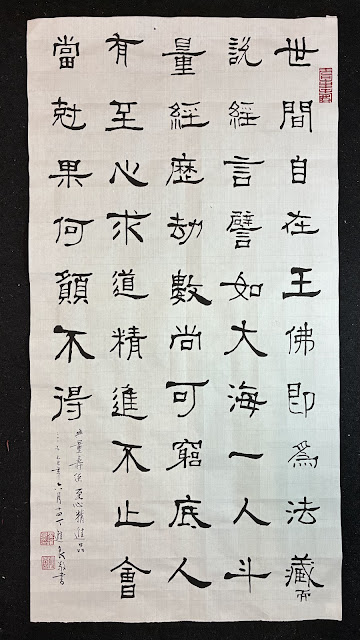 世間自在王佛即爲法藏而
說經言譬如大海一人斗
量經歷劫數尚可窮底人
有至心求道精進不止會
當尅果何願不得
无量壽經至心精進品
年六月書